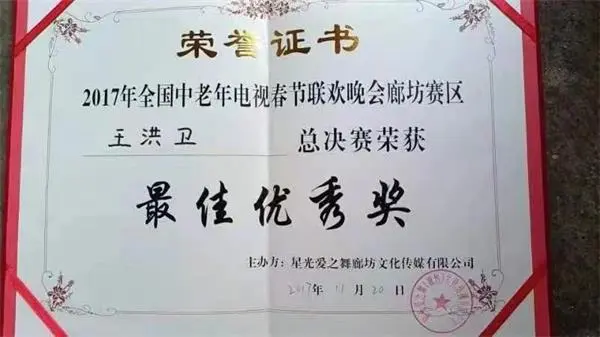 荣誉证书
2017年全国中老年电视春节联欢晚会廊坊赛区
王洪卫 总决赛荣获
最佳优秀奖
主办方：星光爱之舞廊坊文化传媒有限公司
2017年11月20日